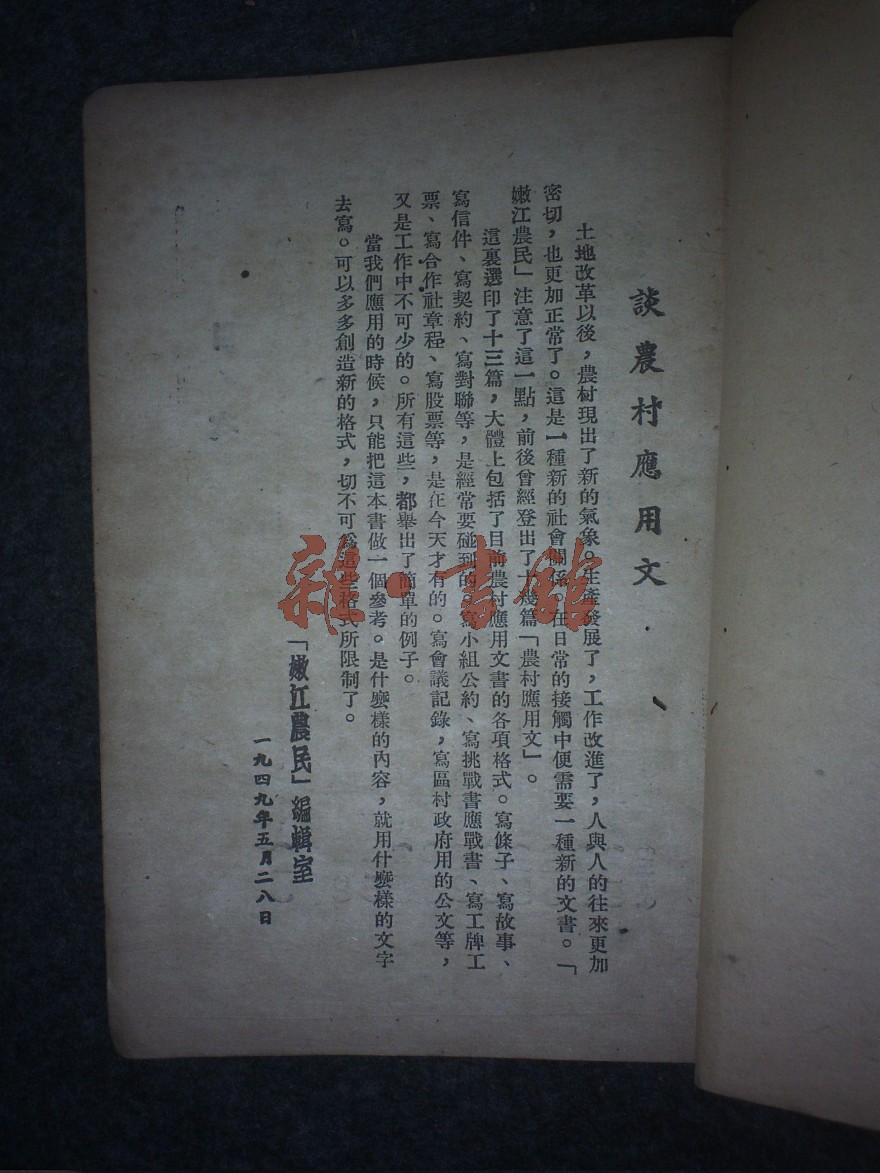 談農村應用文
土地改革以後，農村現出了新的氣象。生產發展了，工作改進了，人與人的往來更加
密切，也更加正常了。這是一種新的社會關係，在日常的接觸中便需要一種新的文書。「
嫩江農民」注意了這一點，前後曾經登出了十幾篇「農村應用文」。
這裏選印了十三篇，大體上包括了目前農村應用文書的各項格式。寫條子、寫故事、
寫信件、寫契約、寫對聯等，是經常要碰到的。寫小組公約、寫挑戰書應戰書、寫工牌工
票、寫合作社章程、寫股票等，是在今天才有的。寫會議記錄，寫區村政府用的公文等，
又是工作中不可少的。所有這些，都舉出了簡單的例子。
當我們應用的時候，只能把這本書做一個參考。是什麼樣的內容，就用什麼樣的文字
去寫。可以多多創造新的格式，切不可為這些格式所限制了。
「嫩江農民」編輯室
一九四九年五月二八日
雜·書館